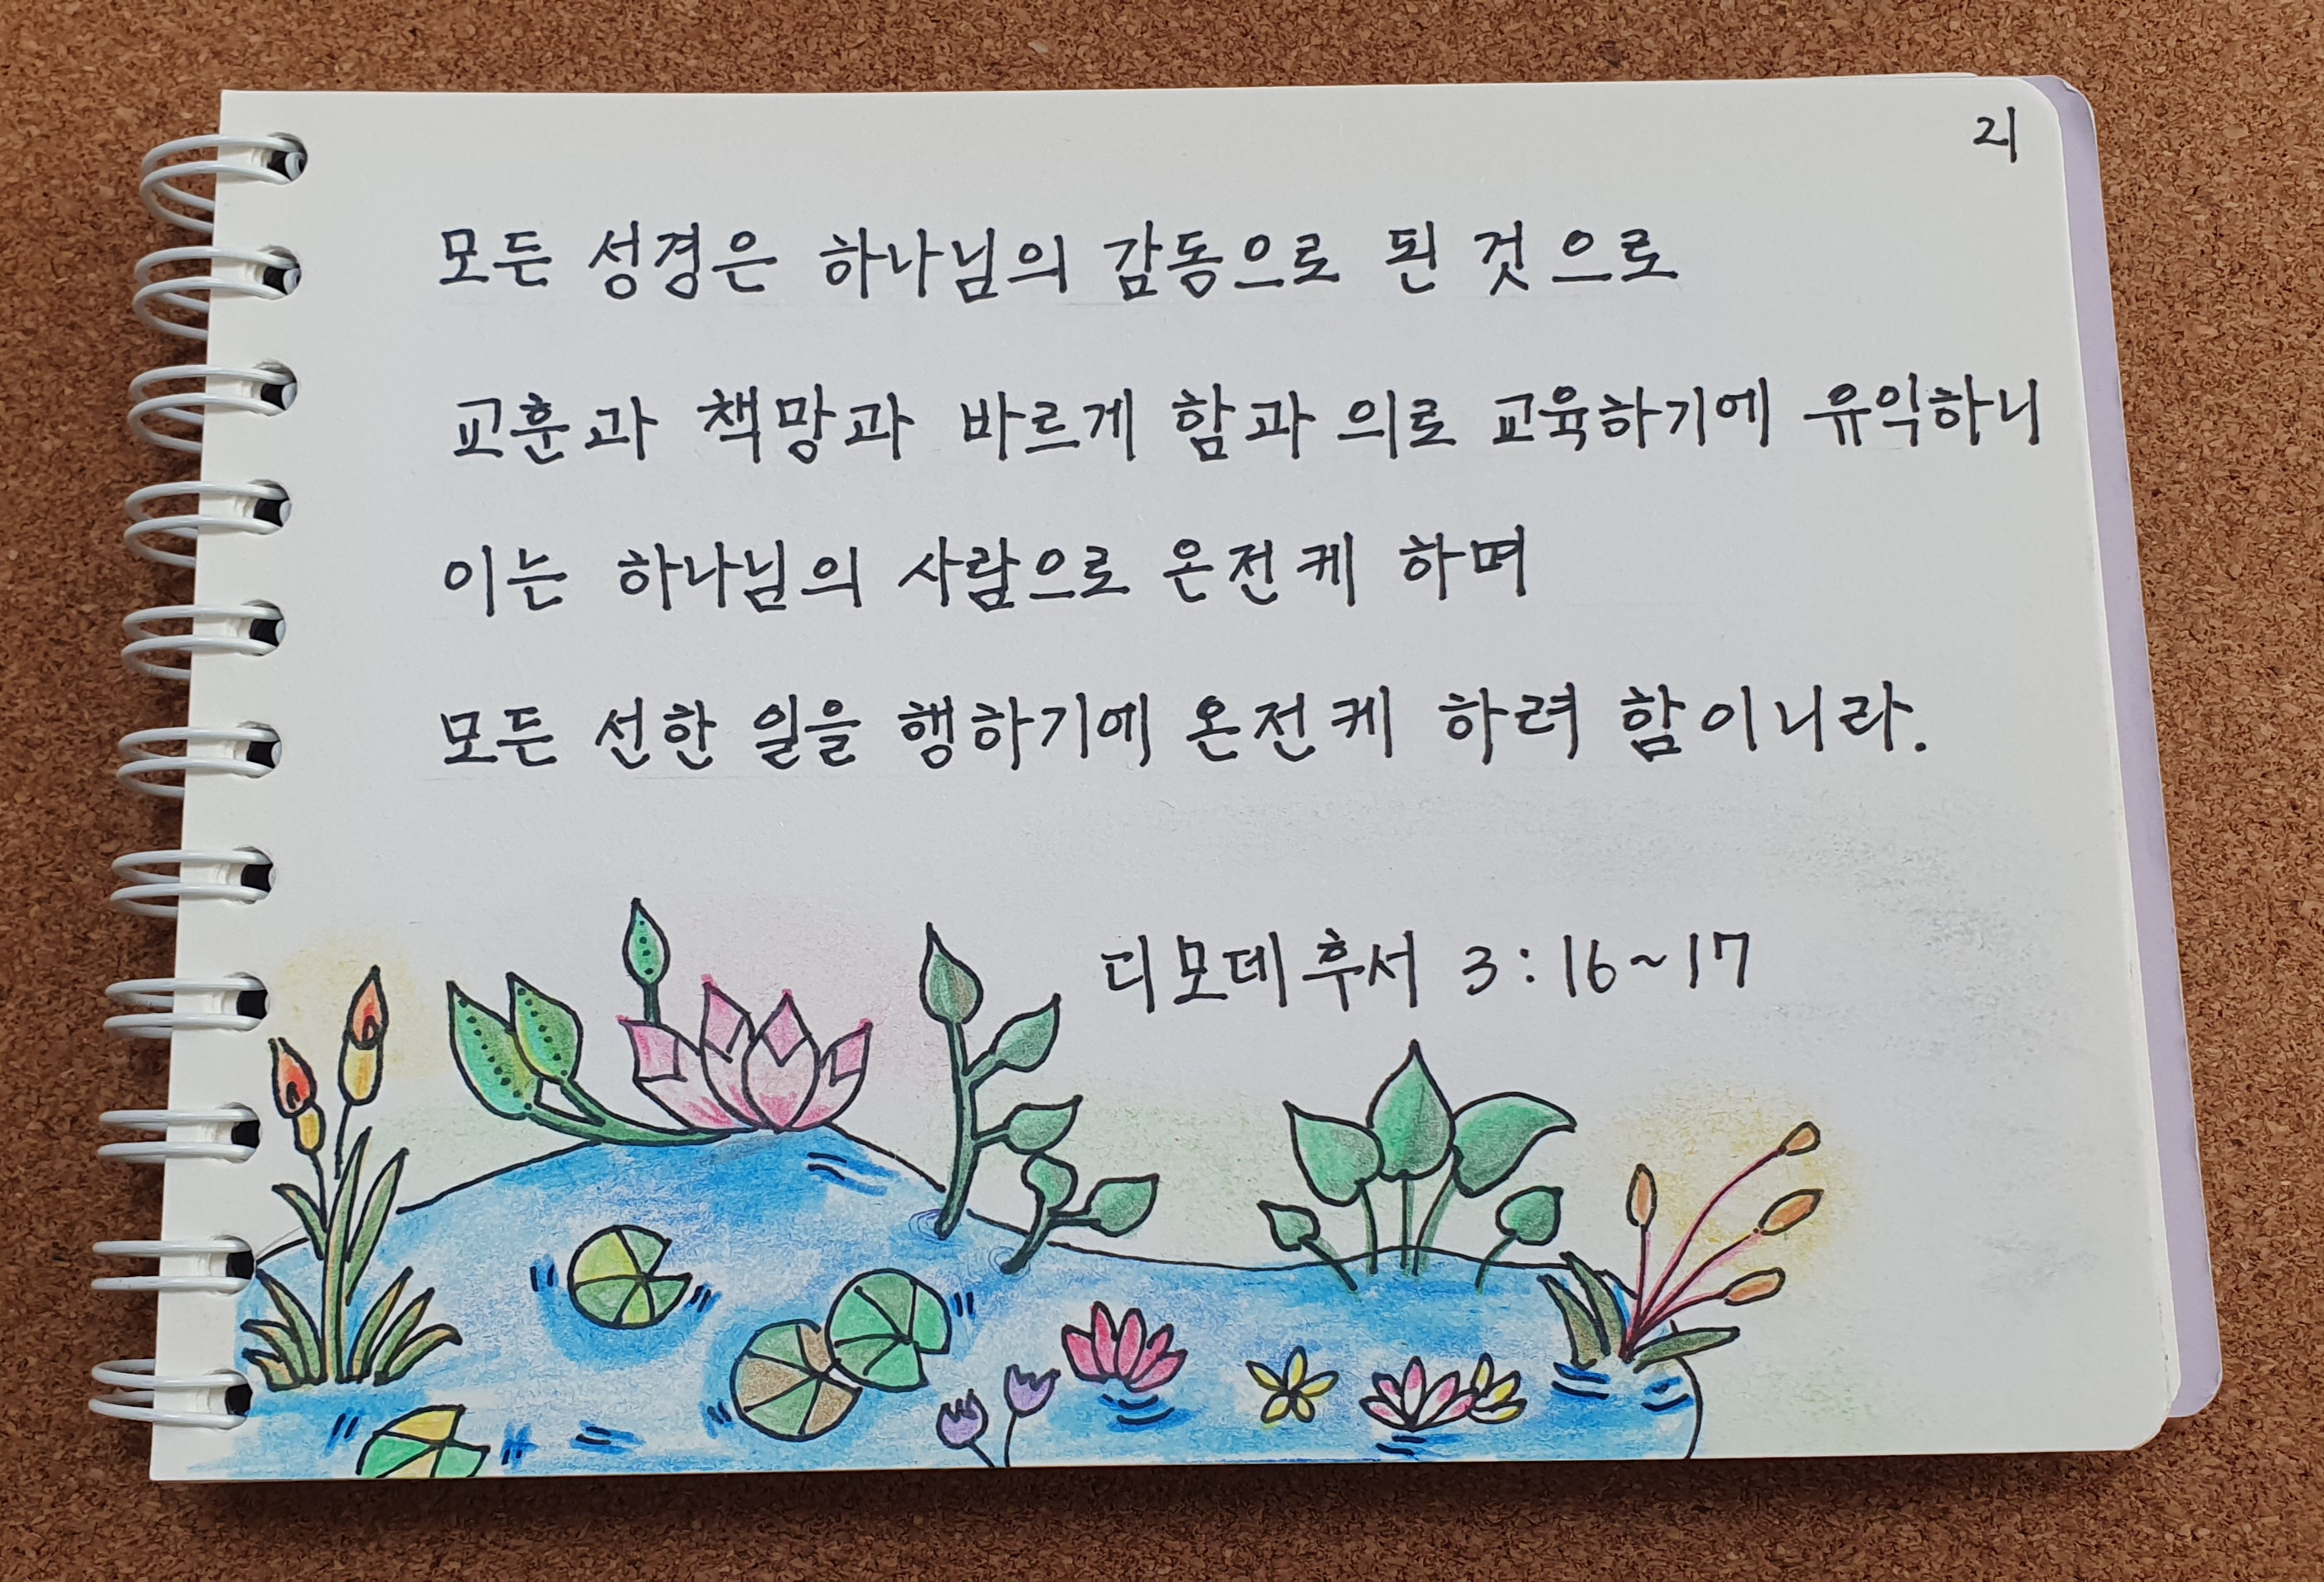 21
모든 성경은 하나님의 감동으로 된 것으로
교훈과 책망과 바르게 함과 의로 교육하기에 유익하니
이는 하나님의 사람으로 온전케 하며
모든 선한 일을 행하기에 온전케 하려 함이니라.
디모데후서 3:16~17